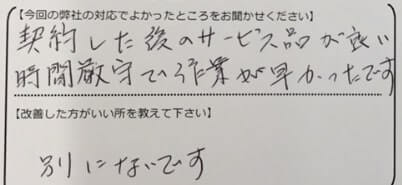 【今回の弊社の対応でよかったところをお聞かせください】
契約した後のサービス品が良い
時間厳守で作業が早かったです
【改善した方がいい所を教えて下さい】
別にないです